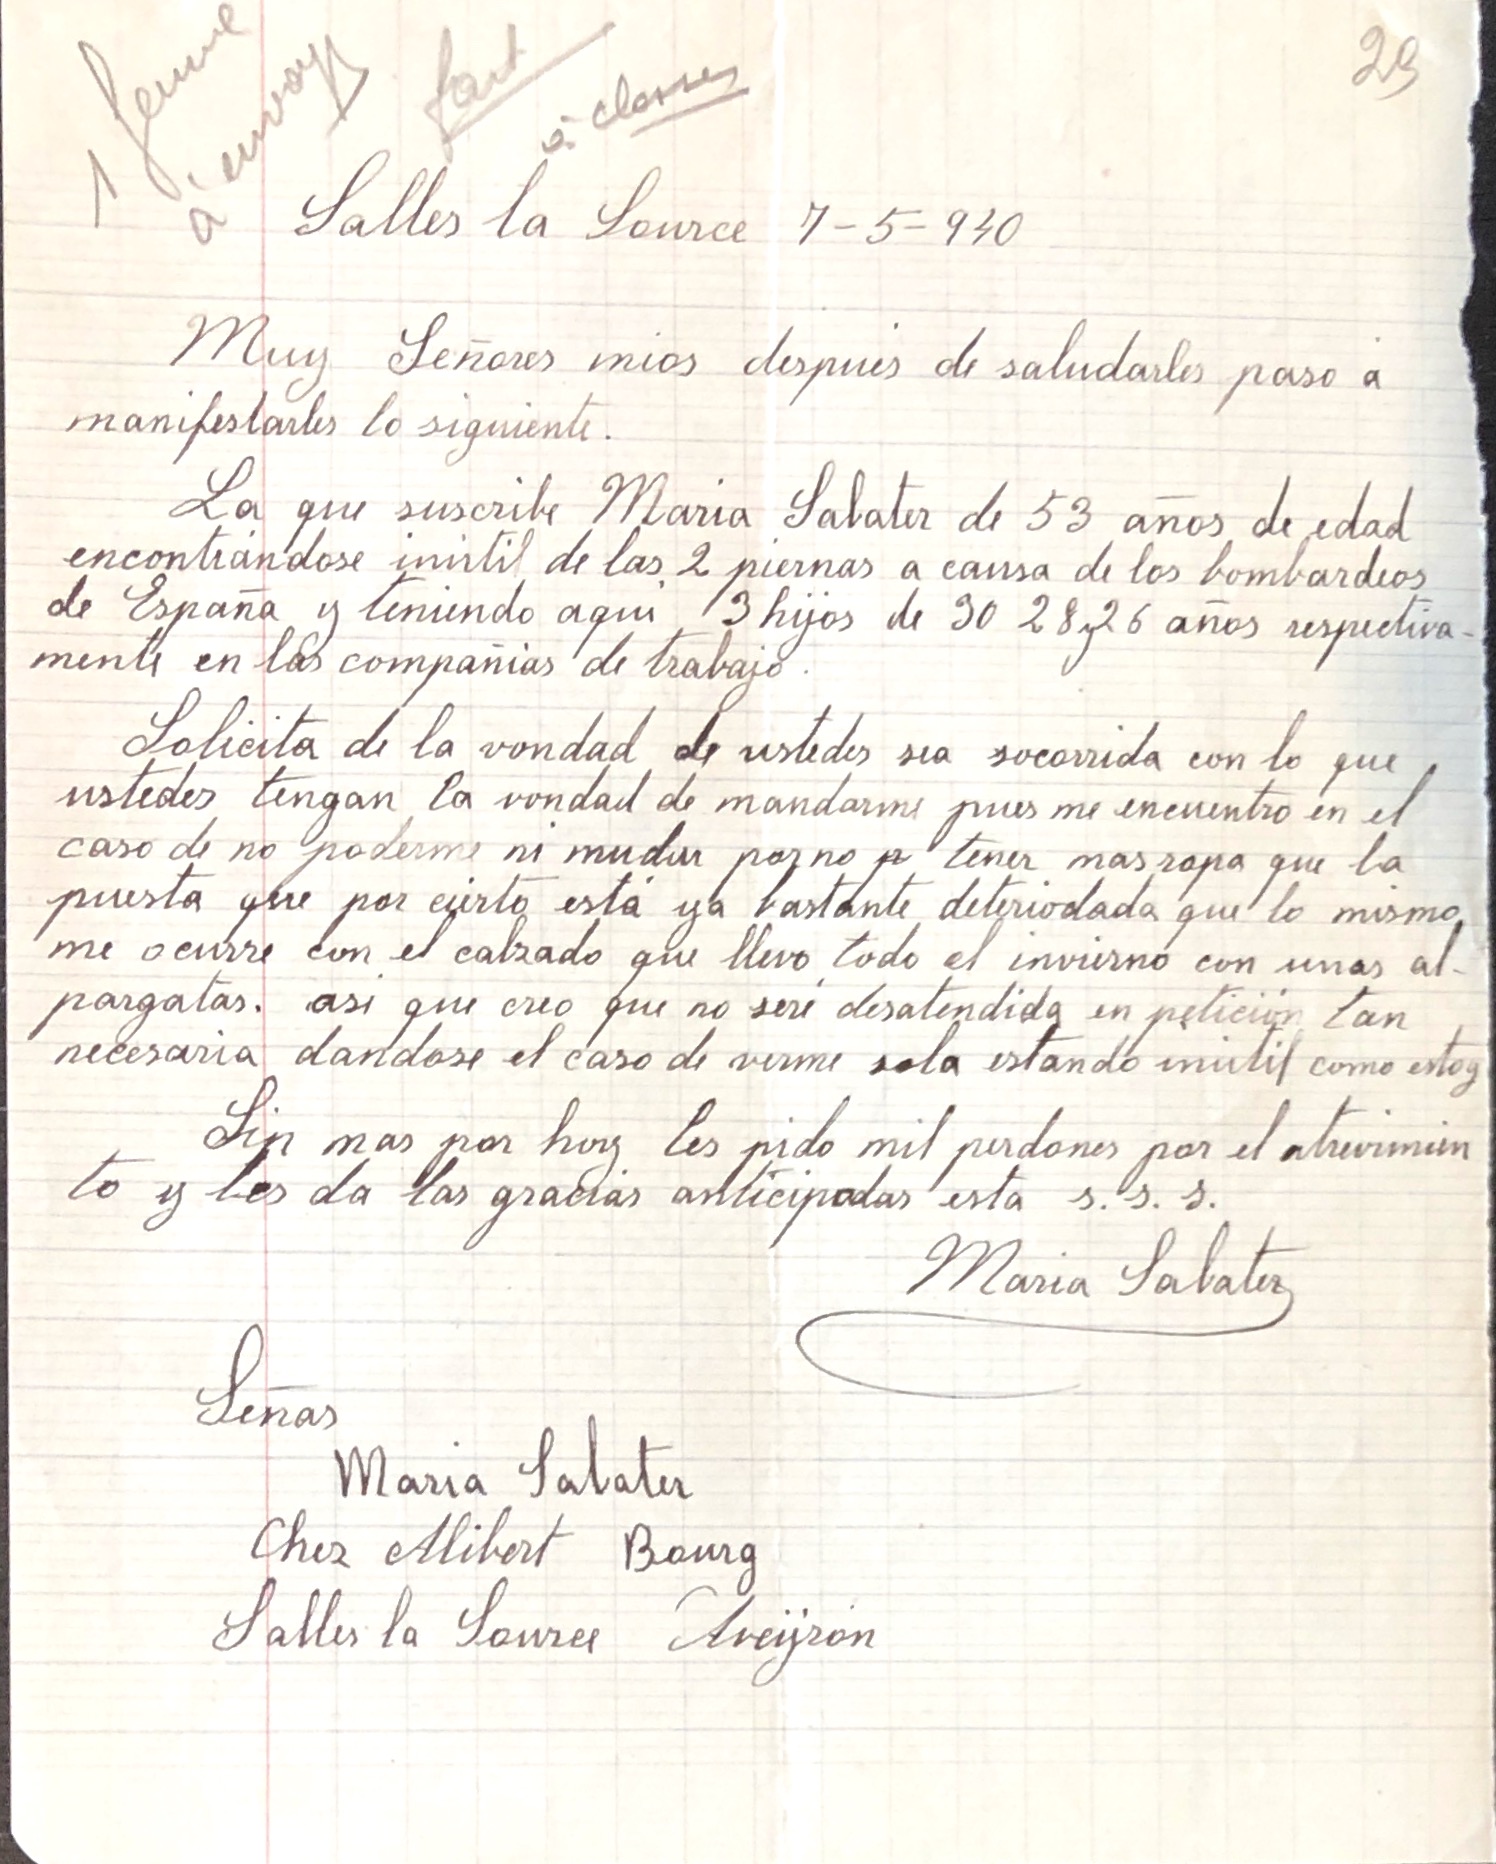 29
1 femme
à envoyer
fait
à classer
Salles la Source 7-5-940
Muy Señores mios después de saludarles paso á
manifestarles lo siguiente.
La que suscribe Maria Sabater de 53 años de edad
encontrándose inútil de las 2 piernas a causa de los bombardeos
de España y teniendo aqui 3 hijos de 30 28 y 26 años respectiva-
mente en las compañias de trabajo.
Solicita de la vondad de ustedes sea socorrida con lo que
ustedes tengan la vondad de mandarme pues me encuentro en el
caso de no poderme ni mudar por no tener mas ropa que la
puesta que por cierto está ya bastante deteriodada que lo mismo
me ocurre con el calzado que llevo todo el invierno con unas al-
pargatas. asi que creo que no seré desatendida en petición tan
necesaria dandose el caso de verme sola estando inútil como estoy
Sin mas por hoy les pido mil perdones por el atrevimien
to y les da las gracias anticipadas esta s. s. s.
Maria Sabater
Señas
Maria Sabater
Chez Alibert Bourg
Salles la Source Aveijrón